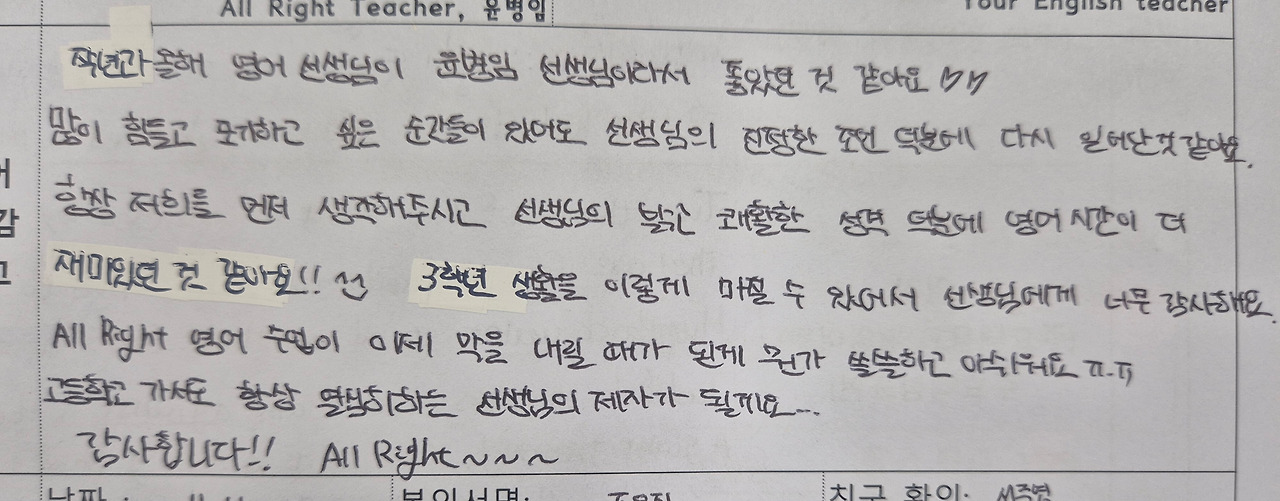 All Right Teacher, 윤병임 Your English teacher
작년과 올해 영어 선생님이 윤병임 선생님이라서 좋았던 것 같아요 ♡♡
많이 힘들고 포기하고 싶은 순간들이 있어도 선생님의 진정한 조언 덕분에 다시 일어난 것 같아요.
항상 저희를 먼저 생각해주시고 선생님의 밝고 쾌활한 성격 덕분에 영어 시간이 더
재미있던 것 같아요!! ^^ 3학년 생활을 이렇게 마칠 수 있어서 선생님에게 너무 감사해요.
All Right 영어 수업이 이제 막을 내릴 때가 된게 뭔가 쓸쓸하고 아쉬워요 ㅠ.ㅠ
고등학교 가서도 항상 열심히하는 선생님의 제자가 될게요...
감사합니다!! All Right~~~
날짜 : 본인서명: 친구 확인: